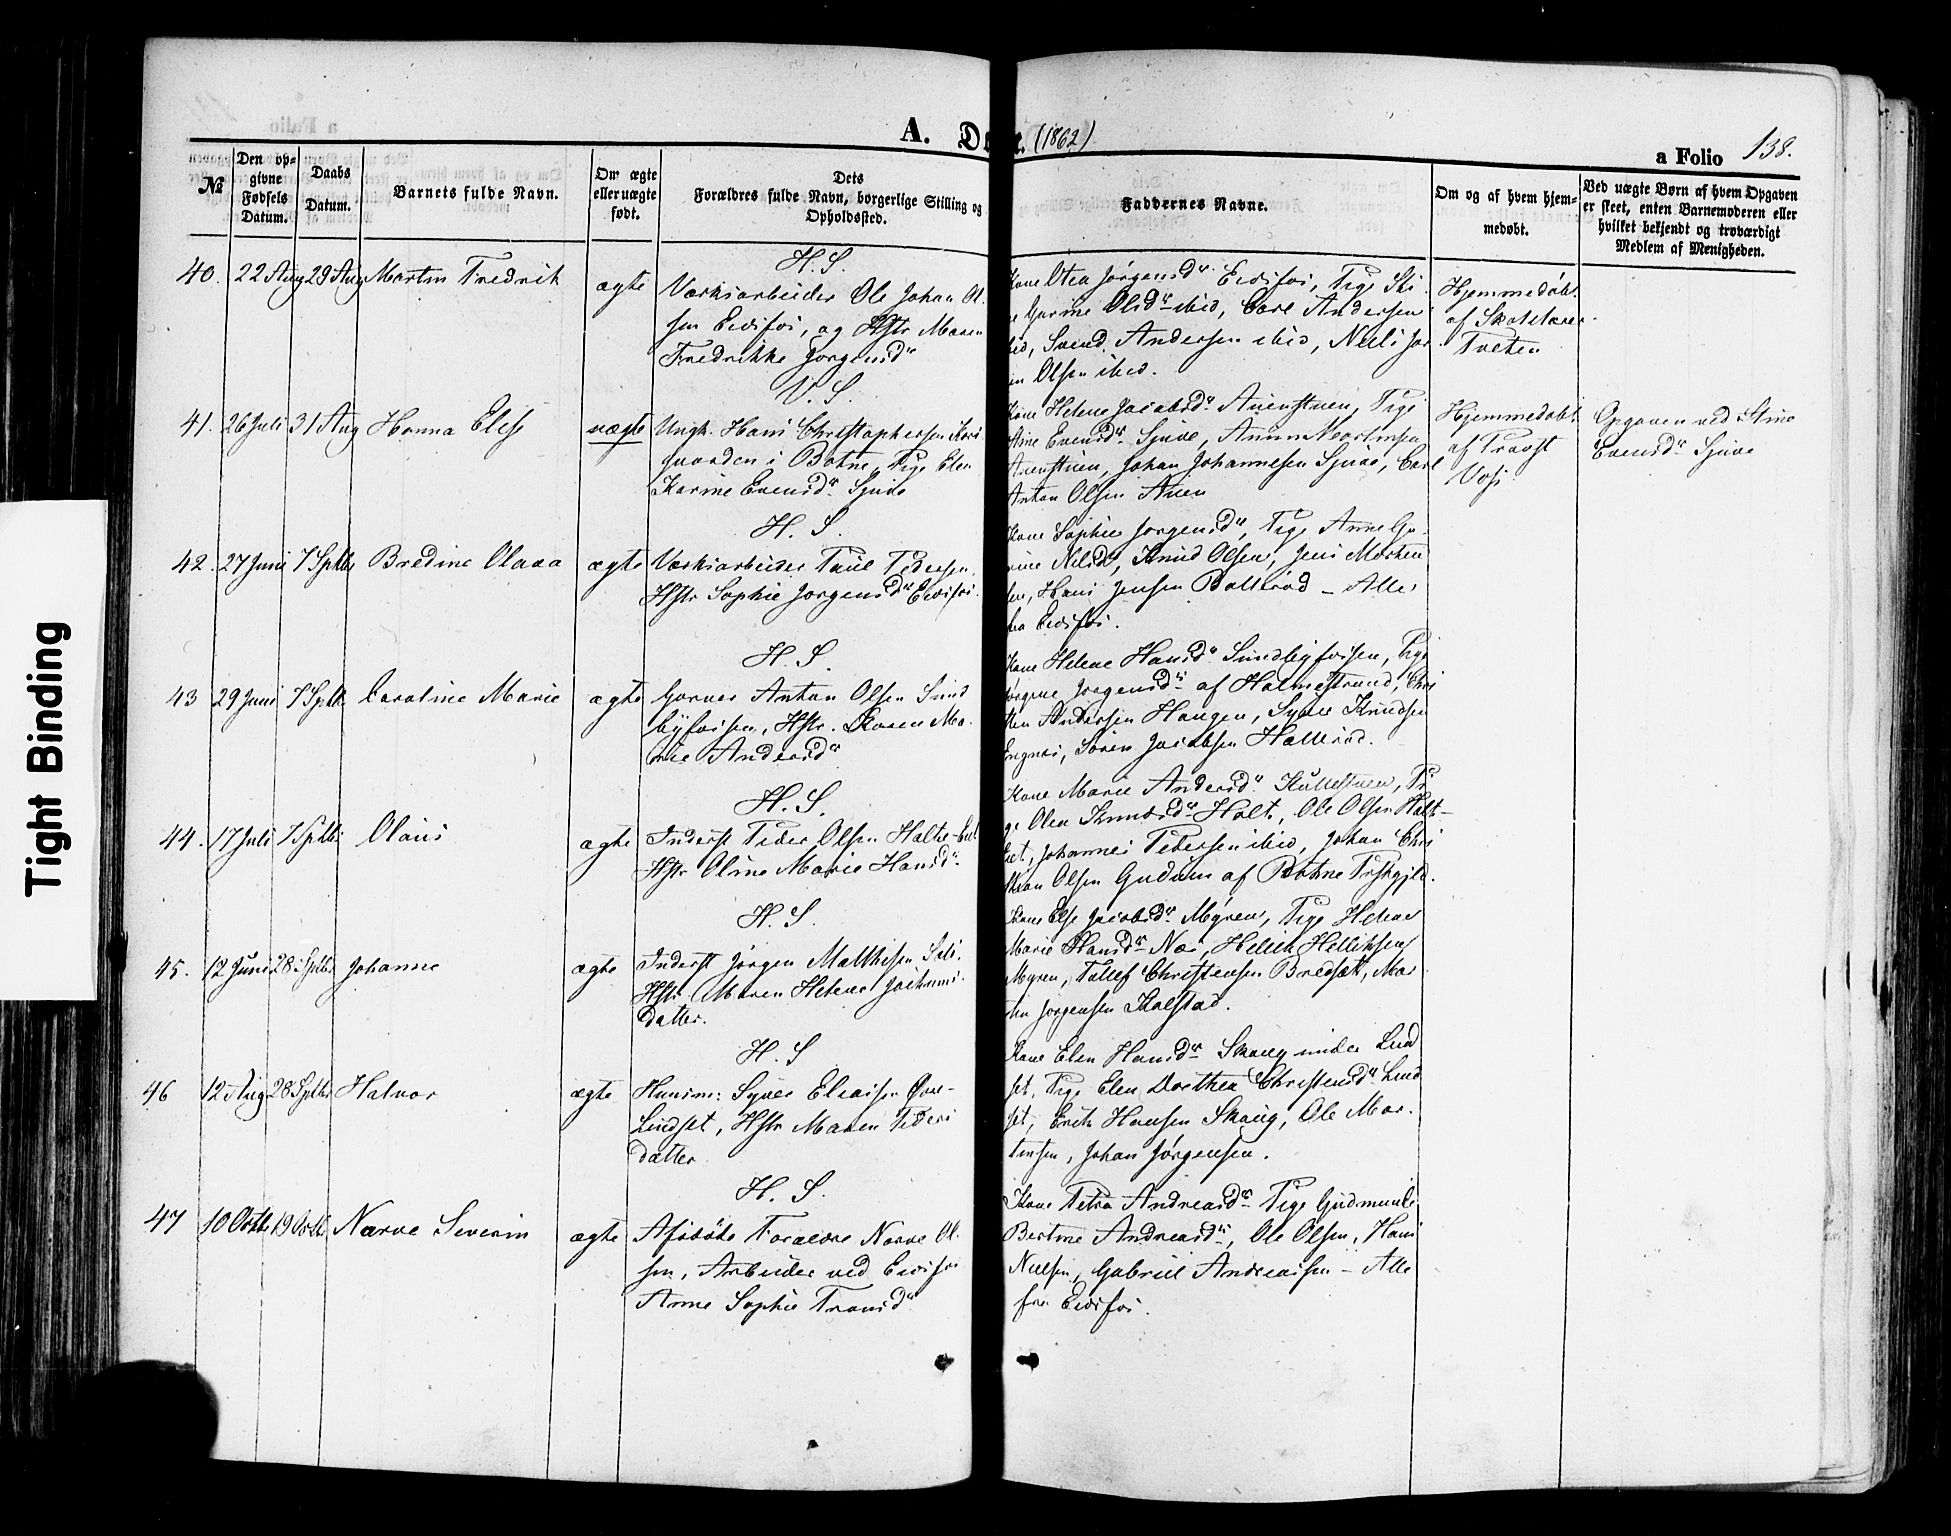 Tight Binding
A. D e. (1862)
a Folio 138.
№
Den opgivne Fødsels Datum.
Daabs Datum.
Barnets fulde Navn.
Om ægte eller uægte født.
Dets Forældres fulde Navn, borgerlige Stilling og Opholdssted.
Faddernes Navne.
Om og af hvem hjemmedøbt.
Ved uægte Børn af hvem Opgaven er skeet, enten Barnemoderen eller hvilket bekjendt og troværdigt Medlem af Menigheden.
H. S.
40. 22 Aug 29 Aug Martin Fredrik ægte
Værksarbeider Ole Johan Ol-
sen Eidsfos, og Hstr Maren
Fredrikke Jørgensdr
Kone Olea Jørgensdr Eidsfos, Pige
Gurine Olsdr ibid, Carl Andersen
ibid, Svend Andersen ibid, Niels Jør
en Olsen ibid.
Hjemmedøbt
af Skolelærer
Tveten
V. S.
41. 26 Juli 31 Aug Hanna Elise uægte
Ungk. Hans Christophersen
gaarden i Botne, Pige Elen
Karine Evensdr Sjuve
Kone Helene Jacobsdr Auenstuen, Pige
Stine Evensdr Sjuve, Anun Martinsen
Auenstuen, Johan Johannesen Sjuve, Carl
Anton Olsen Auen
Hjemmedøbt
af Provst
Voss
Opgaven ved Stine
Evensdr Sjuve
H. S.
42. 27 Juni 7 Septbr Bredine Olava ægte
Værksarbeider Paul Pedersen,
Hstr Sophie Jørgensdr Eidsfos.
Kone Sophie Jørgensdr, Pige Anne Gu-
rine Nilsdr, Knud Olsen, Jens Morten
sen, Hans Jensen Bollerød - Alle
fra Eidsfos.
H. S.
43 29 Juni 7 Septbr Caroline Marie ægte
Garver Anton Olsen Sund
byfossen, Hstr. Karen Ma-
rie Andersdr
Kone Helene Hansdr Sundbyfossen, Pige
Jørgine Jørgensdr af Holmestrand, Chri
sten Andersen Haugen, Syver Knudsen
Engnes, Søren Jacobsen Hallerød.
H. S.
44. 17 Juli 7 Septbr Olaus ægte
Inderst Peder Olsen Holte-
Hstr Oline Marie Hansdr
Kone Marie Andersdr Kullestuen, Pi
ge Olea Knudsdr Holt, Ole Olsen Holt-
et, Johannes Pedersen ibid, Johan Chri
stian Olsen Gudum af Botne Prstgjld.
H. S.
45. 12 Juni 28 Septbr Johanne ægte
Inderst Jørgen Matthisen
Hstr Maren Helene Jochums-
datter.
Kone Else Jacobsdr Myren, Pige Helene
Marie Hansdr Næs, Hellik Helliksen
Myren, Tollef Christensen Bredsæt, Mar
tin Jørgensen Kolstad.
H. S
46 12 Aug 28 Septbr Halvor ægte
Huusm: Syver Eliassen Øvre-
Lindset, Hstr Maren Peders
datter
Kone Elen Hansdr Skaug under Lind
set, Pige Elen Dorthea Christensdr Lind
set, Erik Hansen Skaug, Ole Mar-
tinsen, Johan Jørgensen.
H. S.
47 10 Octbr 19 Octbr Narve Severin ægte
Afdøde Forældre Narve Ol-
sen, Arbeider ved Eidsfos
Anne Sophie Fransdr
Kone Petra Andreasdr Pige Gudmunde
Bertine Andreasdr, Ole Olsen, Hans
Nielsen, Gabriel Andreassen - Alle
fra Eidsfos.